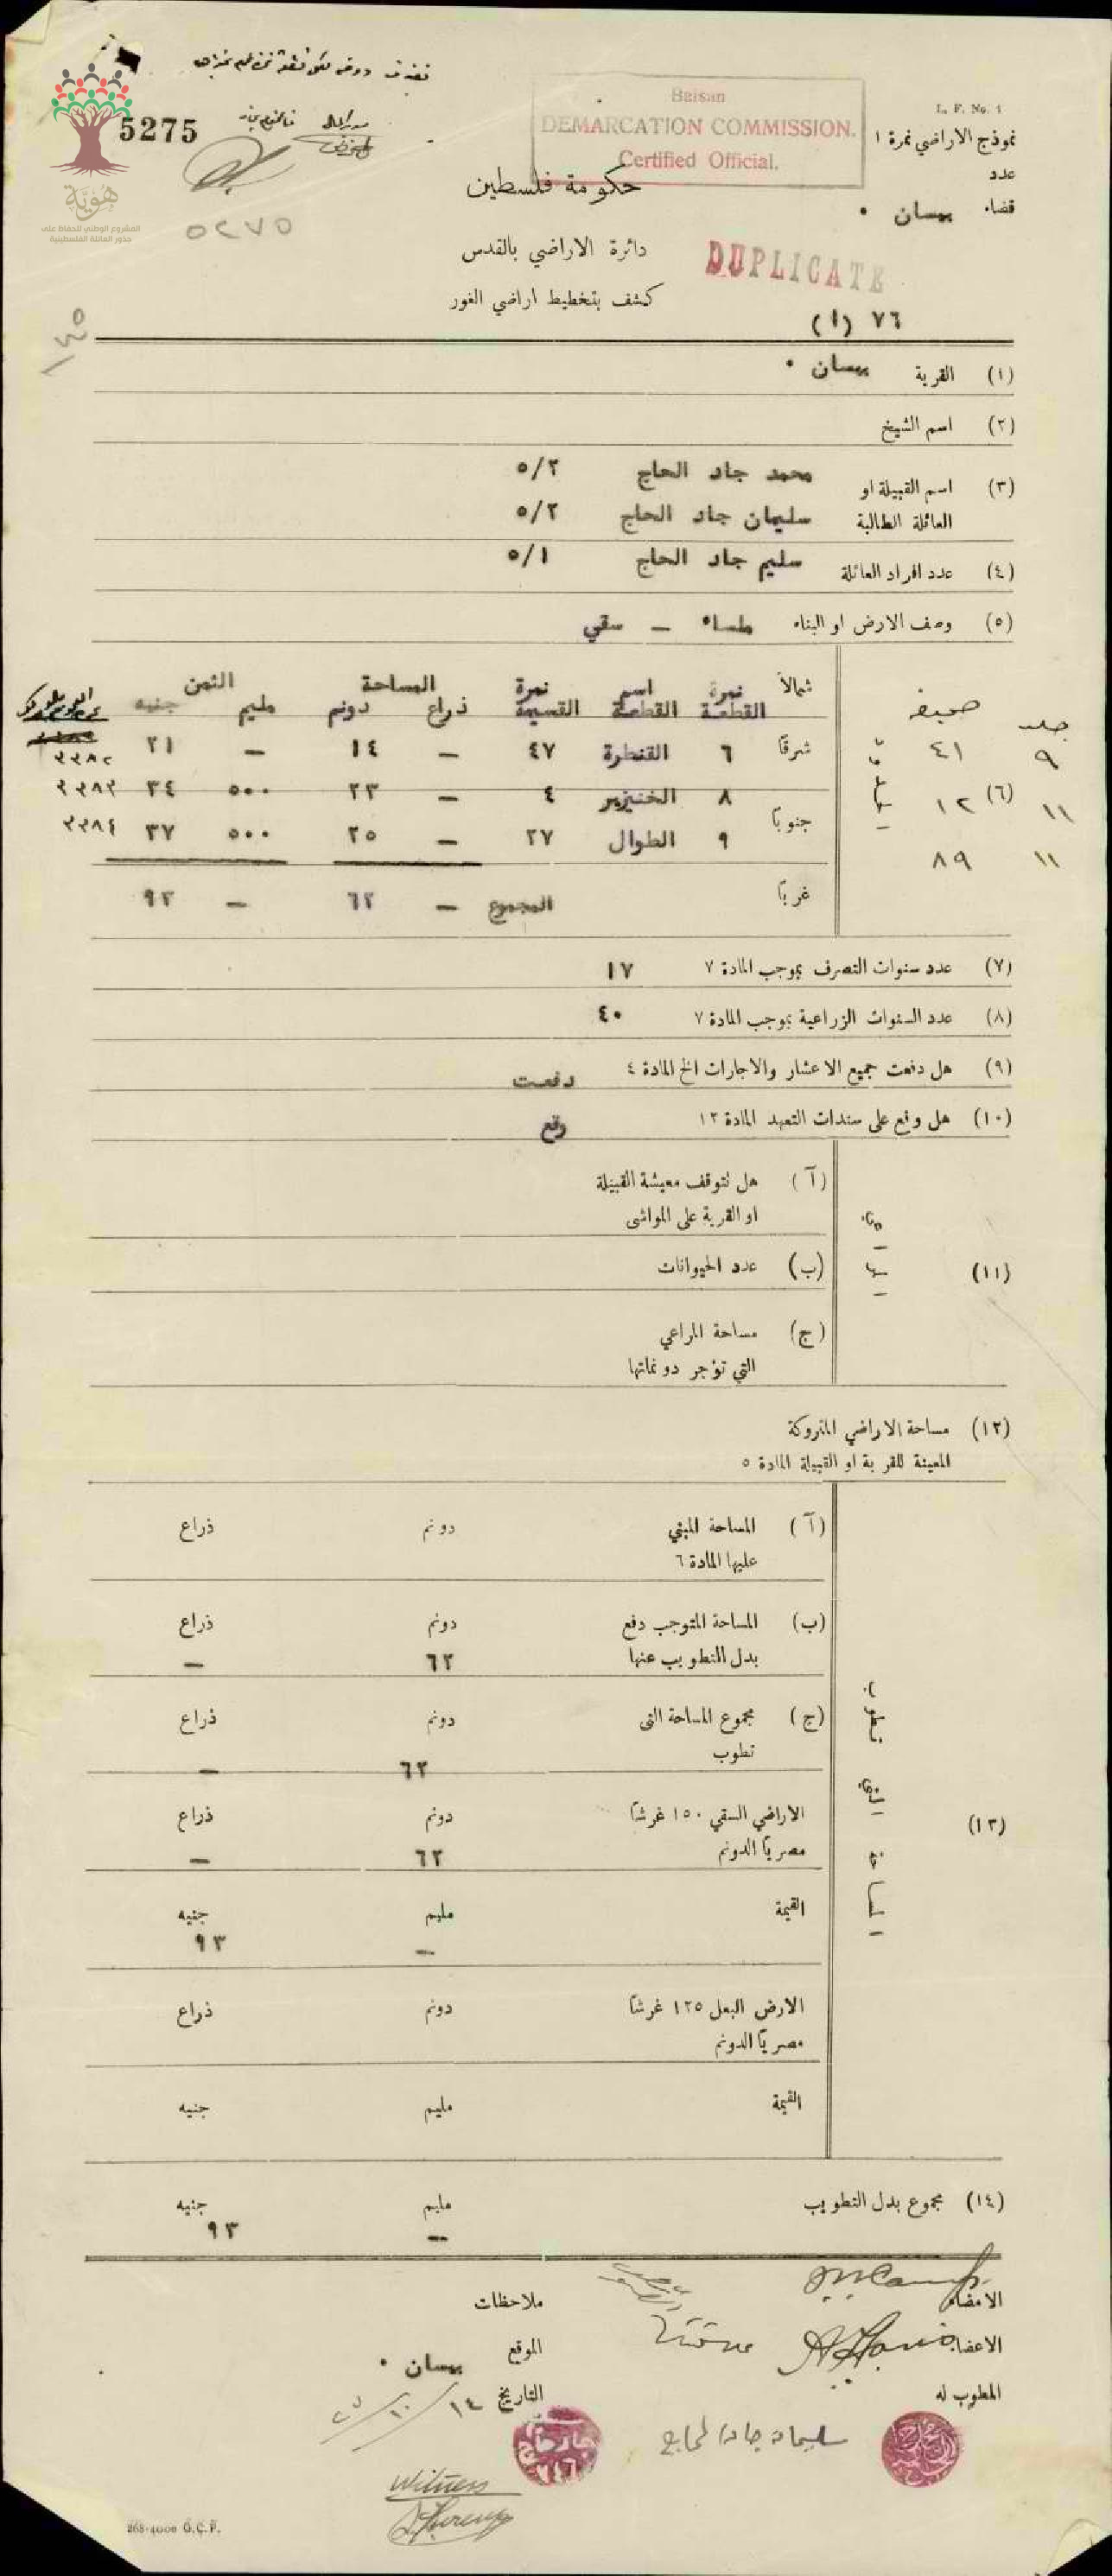 هُوِيَّة
المشروع الوطني للحفاظ على
جذور العائلة الفلسطينية
5275
٥٢٧٥
Baisan
DEMARCATION COMMISSION.
Certified Official.
L. F. No. 1
نموذج الاراضي نمرة ١
عدد
قضاء بيسان •
حكومة فلسطين
دائرة الاراضي بالقدس
DUPLICATE
كشف بتخطيط اراضي الغور
٧٦ (١)
١٤٥
(١) القرية بيسان •
(٢) اسم الشيخ
(٣) اسم القبيلة او محمد جاد الحاج ٥/٢
العائلة الطالبة سليمان جاد الحاج ٥/٢
(٤) عدد افراد العائلة سليم جاد الحاج ٥/١
(٥) وصف الارض او البناء ملساء — سقي
جلد صحيفة شمالاً نمرة القطعة اسم القطعة نمرة القسيمة المساحة ذراع دونم الثمن مليم جنيه
٩ ٤١ شرقاً ٦ القنطرة ٤٧ — ١٤ — ٢١ ٣٣٨٢
(٦) ١١ ١٢ ٨ الخنيزير ٤ — ٢٣ ٥٠٠ ٣٤ ٣٣٨٣
جنوباً
١١ ٨٩ ٩ الطوال ٢٧ — ٢٥ ٥٠٠ ٣٧ ٣٣٨٤
غرباً المجموع — ٦٢ — ٩٣
(٧) عدد سنوات التصرف بموجب المادة ٧ ١٧
(٨) عدد السنوات الزراعية بموجب المادة ٧ ٤٠
(٩) هل دفعت جميع الاعشار والاجارات الخ المادة ٤ دفعت
(١٠) هل وقع على سندات التعهد المادة ١٢ وقع
(آ) هل تتوقف معيشة القبيلة
او القرية على المواشى
(١١) (ب) عدد الحيوانات
(ج) مساحة المراعي
التي تؤجر دونماتها
(١٢) مساحة الاراضي المتروكة
المعينة للقرية او القبيلة المادة ٥
(آ) المساحة المبني دونم ذراع
عليها المادة ٦
(ب) المساحة المتوجب دفع دونم ذراع
بدل التطويب عنها ٦٢ —
(ج) مجموع المساحة التى دونم ذراع
تطوب ٦٢ —
(١٣) الاراضي السقي ١٥٠ غرشاً دونم ذراع
مصرياً الدونم ٦٢ —
القيمة مليم جنيه
— ٩٣
الارض البعل ١٢٥ غرشاً دونم ذراع
مصرياً الدونم
القيمة مليم جنيه
(١٤) مجموع بدل التطويب مليم جنيه
— ٩٣
الامضاء ملاحظات
الاعضاء الموقع بيسان •
المطوب له التاريخ ١٤/١٠/٢٥
سليمان جاد الحاج
Witness
268-4000 G.C.P.